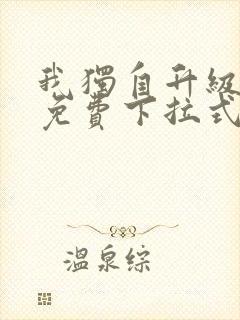 我獨自升級
免費下拉式
溫泉綜